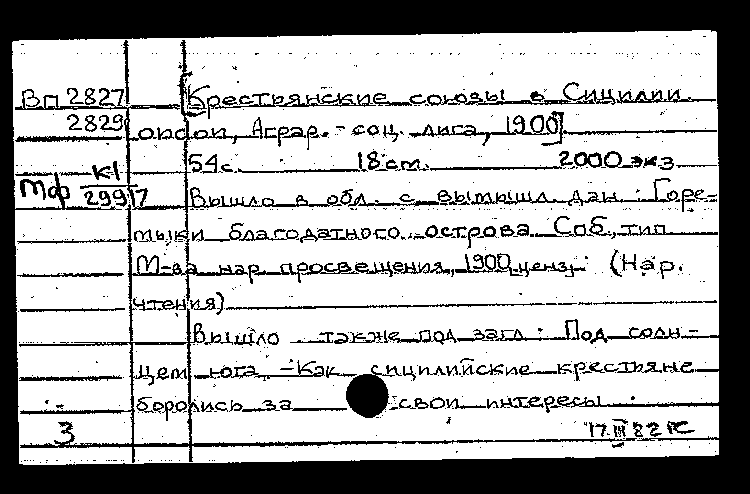 Вп 2827 [Крестьянские союзы в Сицилии.
2829 ondon, Аграр.-соц. лига, 1900].
54 с. 18 cm. 2000 экз
Мф К-1 2997 Вышло в обл. с вымышл. дан.: Горе-
мыки благодатного острова Спб., тип.
М-ва нар. просвещения, 1900, ценз. (Нар.
чтения)
Вышло также под загл.: Под солн-
цем юга. - Как сицилийские крестьяне
боролись за свои интересы.
3 17.III 82